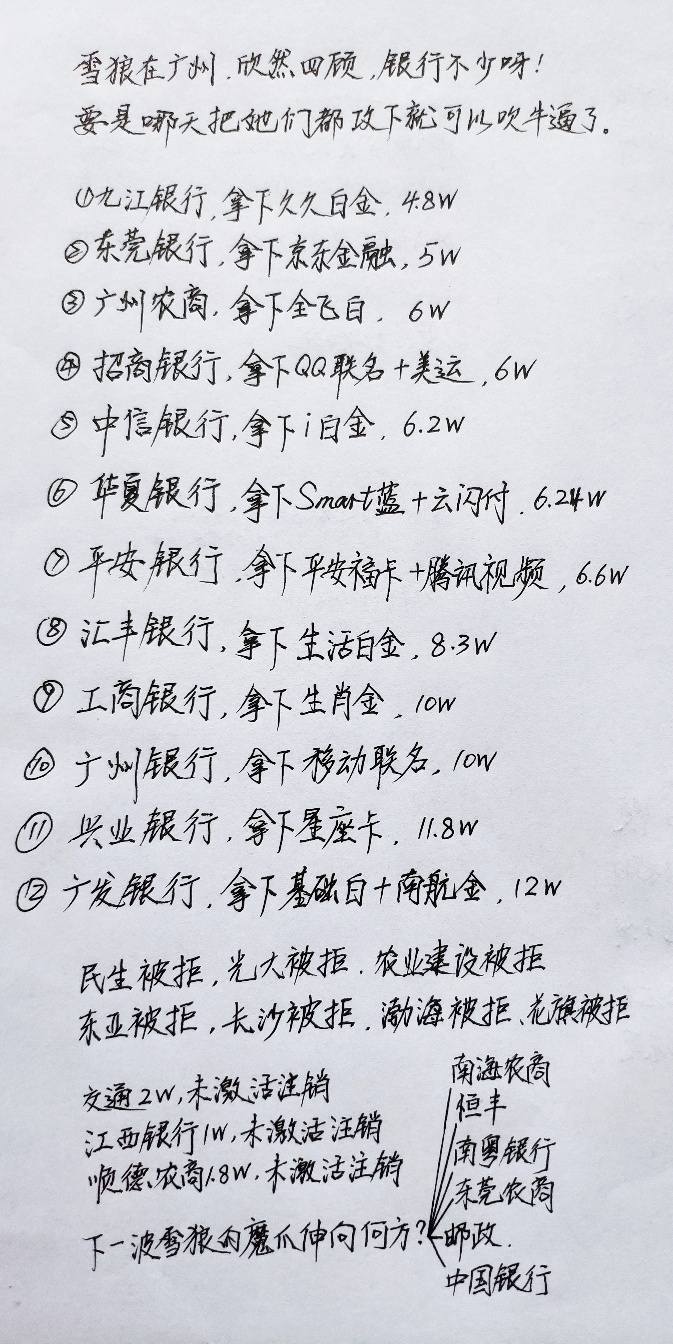 雪狼在广州，欣然四顾，银行不少呀！
要是哪天把她们都攻下就可以吹牛逼了。
①九江银行，拿下久久白金，4.8W
②东莞银行，拿下京东金融，5W
③广州农商，拿下全飞白，6W
④招商银行，拿下QQ联名+美运，6W
⑤中信银行，拿下i白金，6.2W
⑥华夏银行，拿下Smart蓝+云闪付，6.24W
⑦平安银行，拿下平安福卡+腾讯视频，6.6W
⑧汇丰银行，拿下生活白金，8.3W
⑨工商银行，拿下生肖金，10W
⑩广州银行，拿下移动联名，10W
⑪兴业银行，拿下星座卡，11.8W
⑫广发银行，拿下基础白+南航金，12W
民生被拒，光大被拒，农业建设被拒
东亚被拒，长沙被拒，渤海被拒、花旗被拒
交通2W，未激活注销
江西银行1W，未激活注销
顺德农商1.8W，未激活注销
下一波雪狼的魔爪伸向何方？
南海农商
恒丰
南粤银行
东莞农商
邮政
中国银行